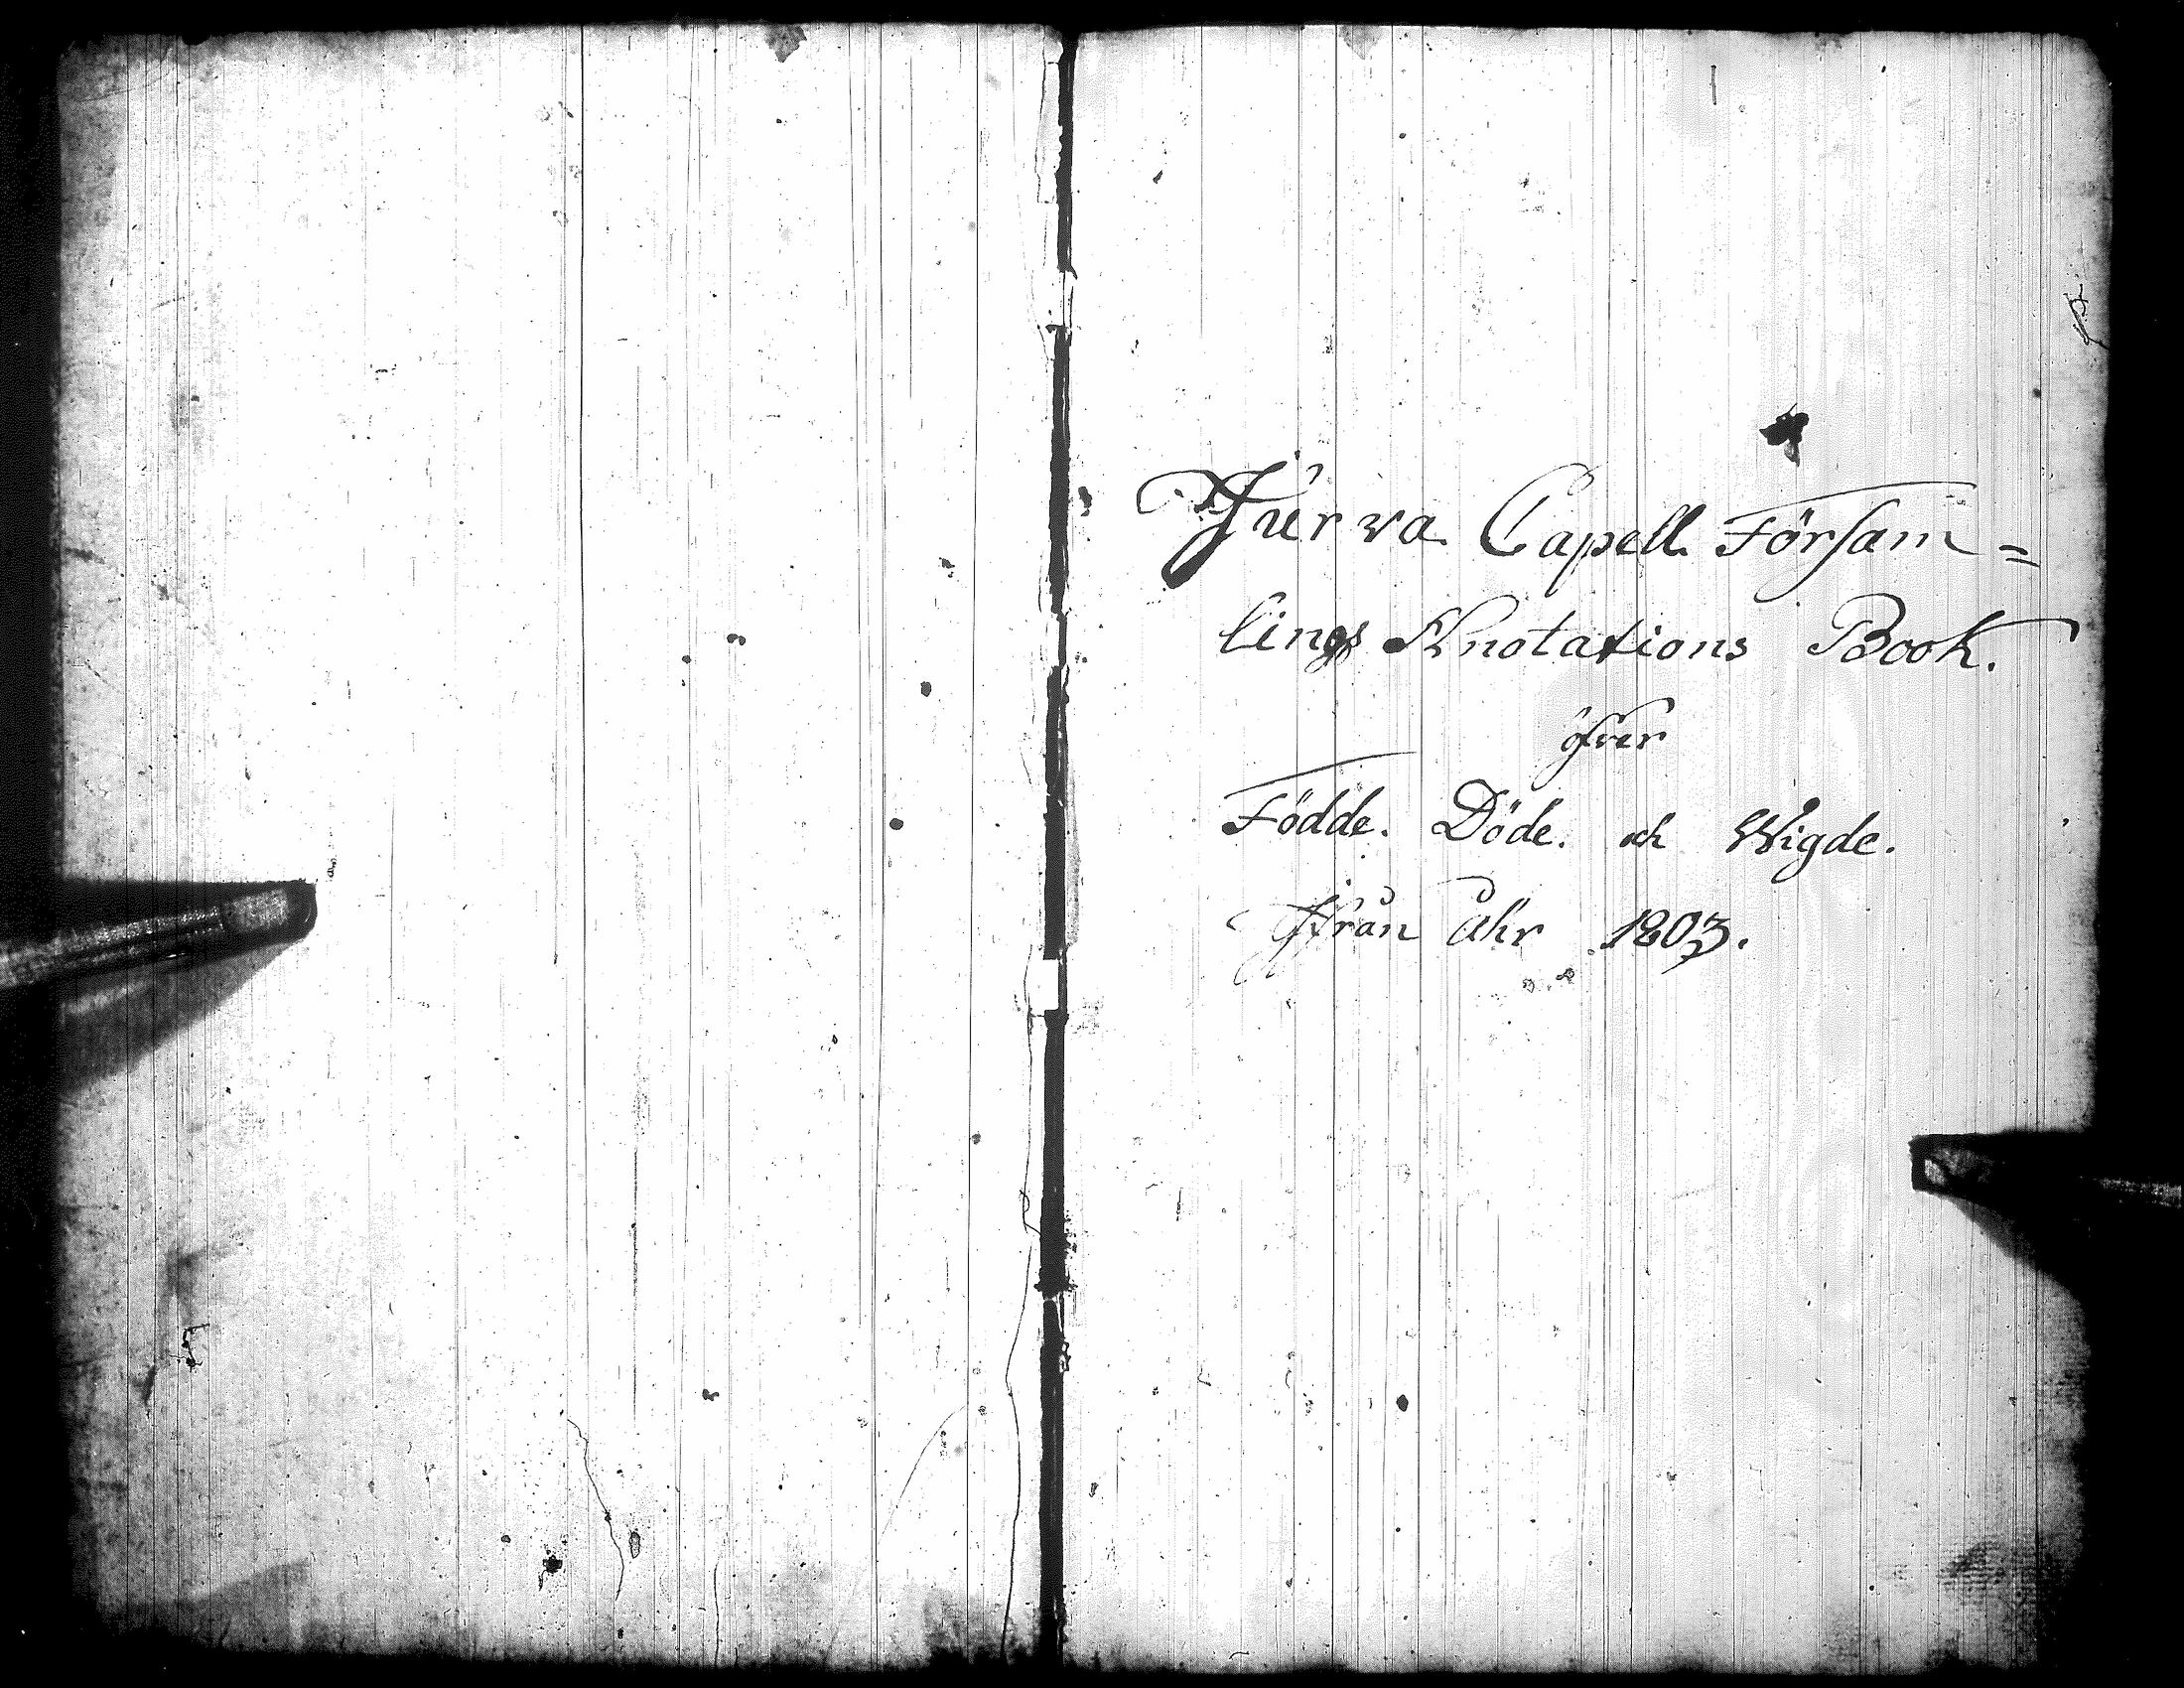 Jurva Capell Försam=
lings Annotations Book.
öfver
Födde. Döde. och Wigde.
ifrån Åhr 1803.